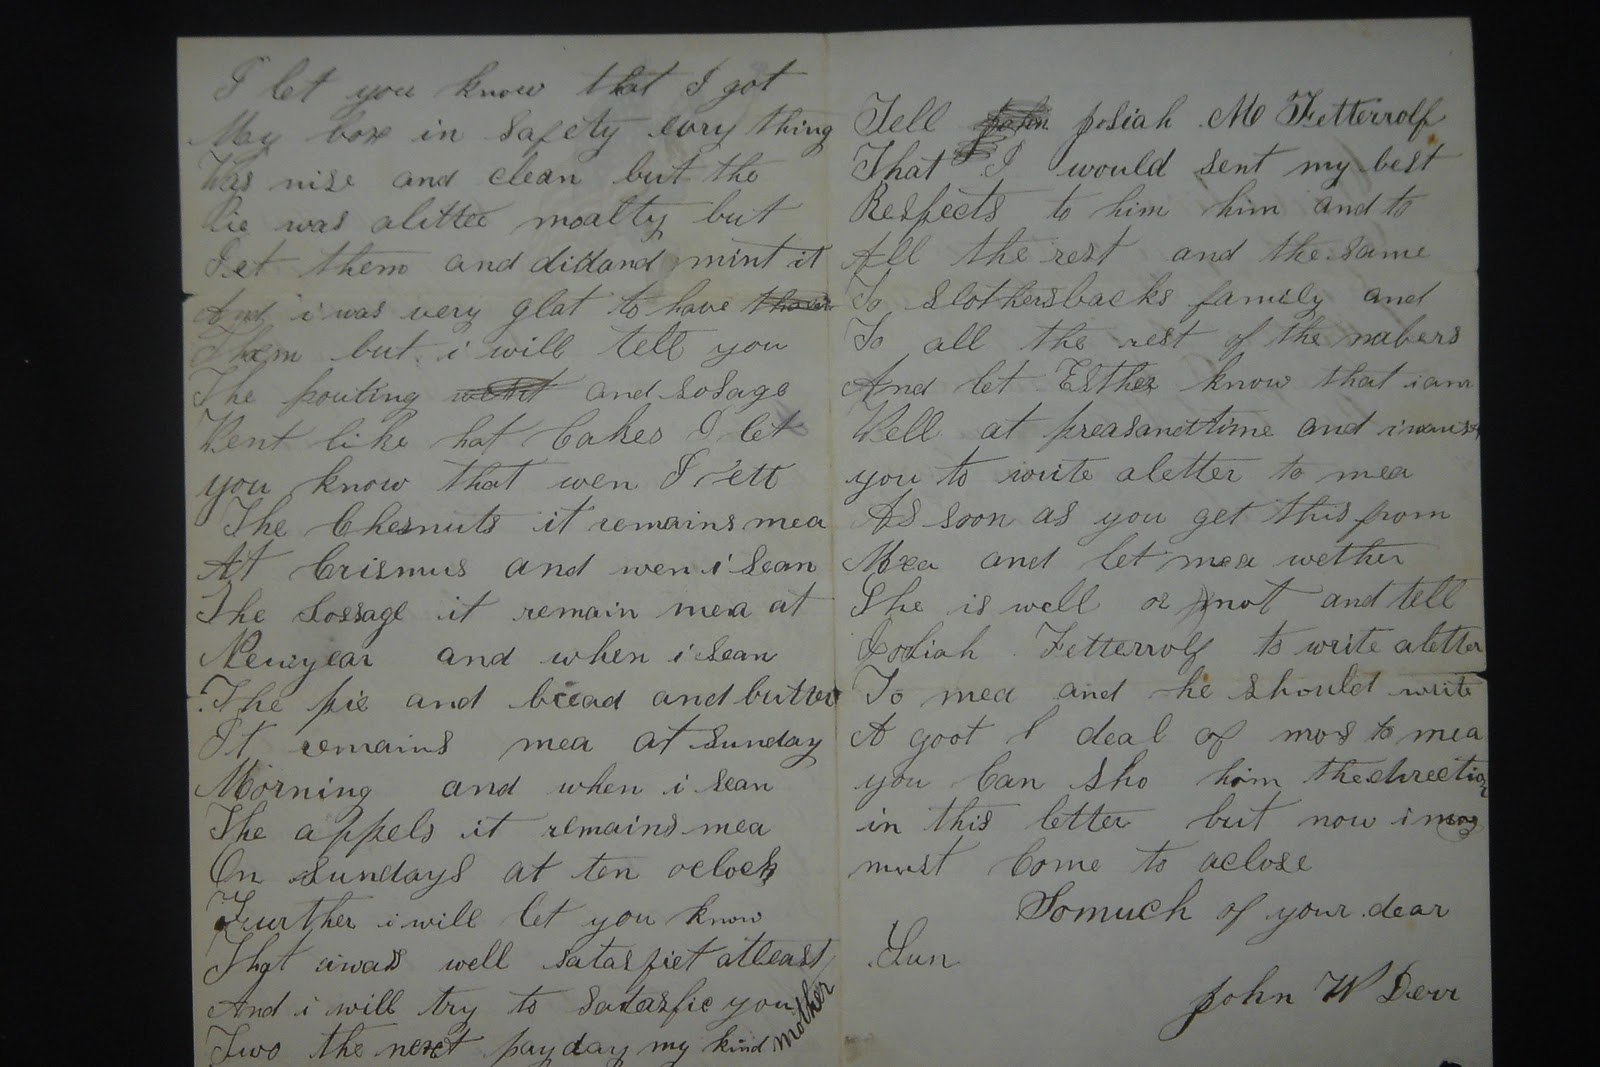 I let you know that I got
May box in safety evry thing
Was nise and clean but the
Pie was alittee moalty but
I et them and diddand mint it
And i was very glat to have
Them but i will tell you
The pouting and sosage
Went like hat Cakes I let
you know that wen I ett
The Chesnuts it remains mea
At Crismus and wen i sean
The Sossage it remain mea at
Newyear and when i sean
The pie and bread and butter
It remains mea at sunday
Morning and when i sean
The appels it remains mea
On sundays at ten oclock
Further i will let you know
That iwass well satasfiet atleast
And i will try to satasfie you
Two the next payday my kind mother
Tell John Josiah M Fetterrolf
That I would sent my best
Respects to him him and to
All the rest and the same
To Slothersbacks family and
To all the rest of the nabers
And let Esther know that i am
Well at preasandttime and i
you to write aletter to mea
As soon as you get this from
Mea and let mea wether
She is well or not and tell
Josiah Fetterrolf to write aletter
To mea and he should write
A goot deal of to mea
you Can sho him thedirection
in this letter but now i
must Come to aclose
Somuch of your dear
Sun
John W Derr